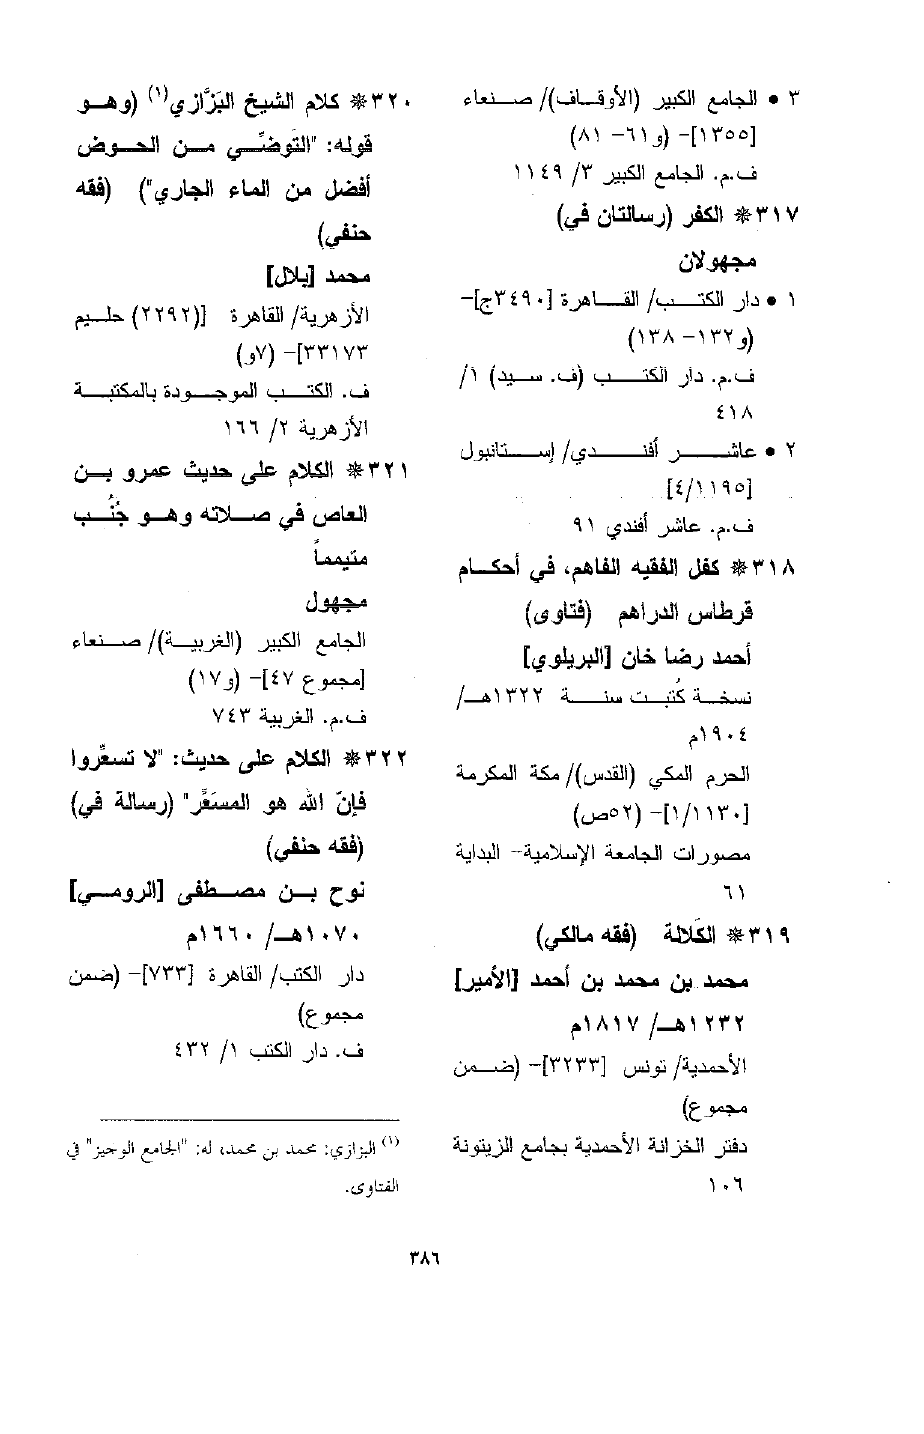 ٣ • الجامع الكبير (الأوقاف)/ صنعاء
[١٣٥٥]- (و٦١- ٨١)
ف.م. الجامع الكبير ٣/ ١١٤٩
٣١٧* الكفر (رسالتان في)
مجهولان
١ • دار الكتب/ القاهرة [٣٤٩٠ج]-
(و١٣٢- ١٣٨)
ف.م. دار الكتب (ف. سيد) ١/
٤١٨
٢ • عاشر أفندي/ إستانبول
[٤/١١٩٥]
ف.م. عاشر أفندي ٩١
٣١٨* كفل الفقيه الفاهم، في أحكام
قرطاس الدراهم (فتاوى)
أحمد رضا خان [البريلوي]
نسخة كُتبت سنة ١٣٢٢هـ/
١٩٠٤م
الحرم المكي (القدس)/ مكة المكرمة
[١/١١٣٠]- (٥٢ص)
مصورات الجامعة الإسلامية- البداية
٦١
٣١٩* الكَلالة (فقه مالكي)
محمد بن محمد بن أحمد [الأمير]
١٢٣٢هـ/ ١٨١٧م
الأحمدية/ تونس [٣٢٣٣]- (ضمن
مجموع)
دفتر الخزانة الأحمدية بجامع الزيتونة
١٠٦
٣٢٠* كلام الشيخ البَزَّازي(١) (وهو
قوله: "التَوضِّي من الحوض
أفضل من الماء الجاري") (فقه
حنفي)
محمد [بلال]
الأزهرية/ القاهرة [(٢٢٩٢) حليم
٣٣١٧٣]- (٧و)
ف. الكتب الموجودة بالمكتبة
الأزهرية ٢/ ١٦٦
٣٢١* الكلام على حديث عمرو بن
العاص في صلاته وهو جُنُب
متيمماً
مجهول
الجامع الكبير (الغربية)/ صنعاء
[مجموع ٤٧]- (و١٧)
ف.م. الغربية ٧٤٣
٣٢٢* الكلام على حديث: "لا تسعِّروا
فإنّ الله هو المسَعِّر" (رسالة في)
(فقه حنفي)
نوح بن مصطفى [الرومي]
١٠٧٠هـ/ ١٦٦٠م
دار الكتب/ القاهرة [٧٣٣]- (ضمن
مجموع)
ف. دار الكتب ١/ ٤٣٢
(١) البزازي: محمد بن محمد، له: "الجامع الوجيز" في
الفتاوى.
٣٨٦